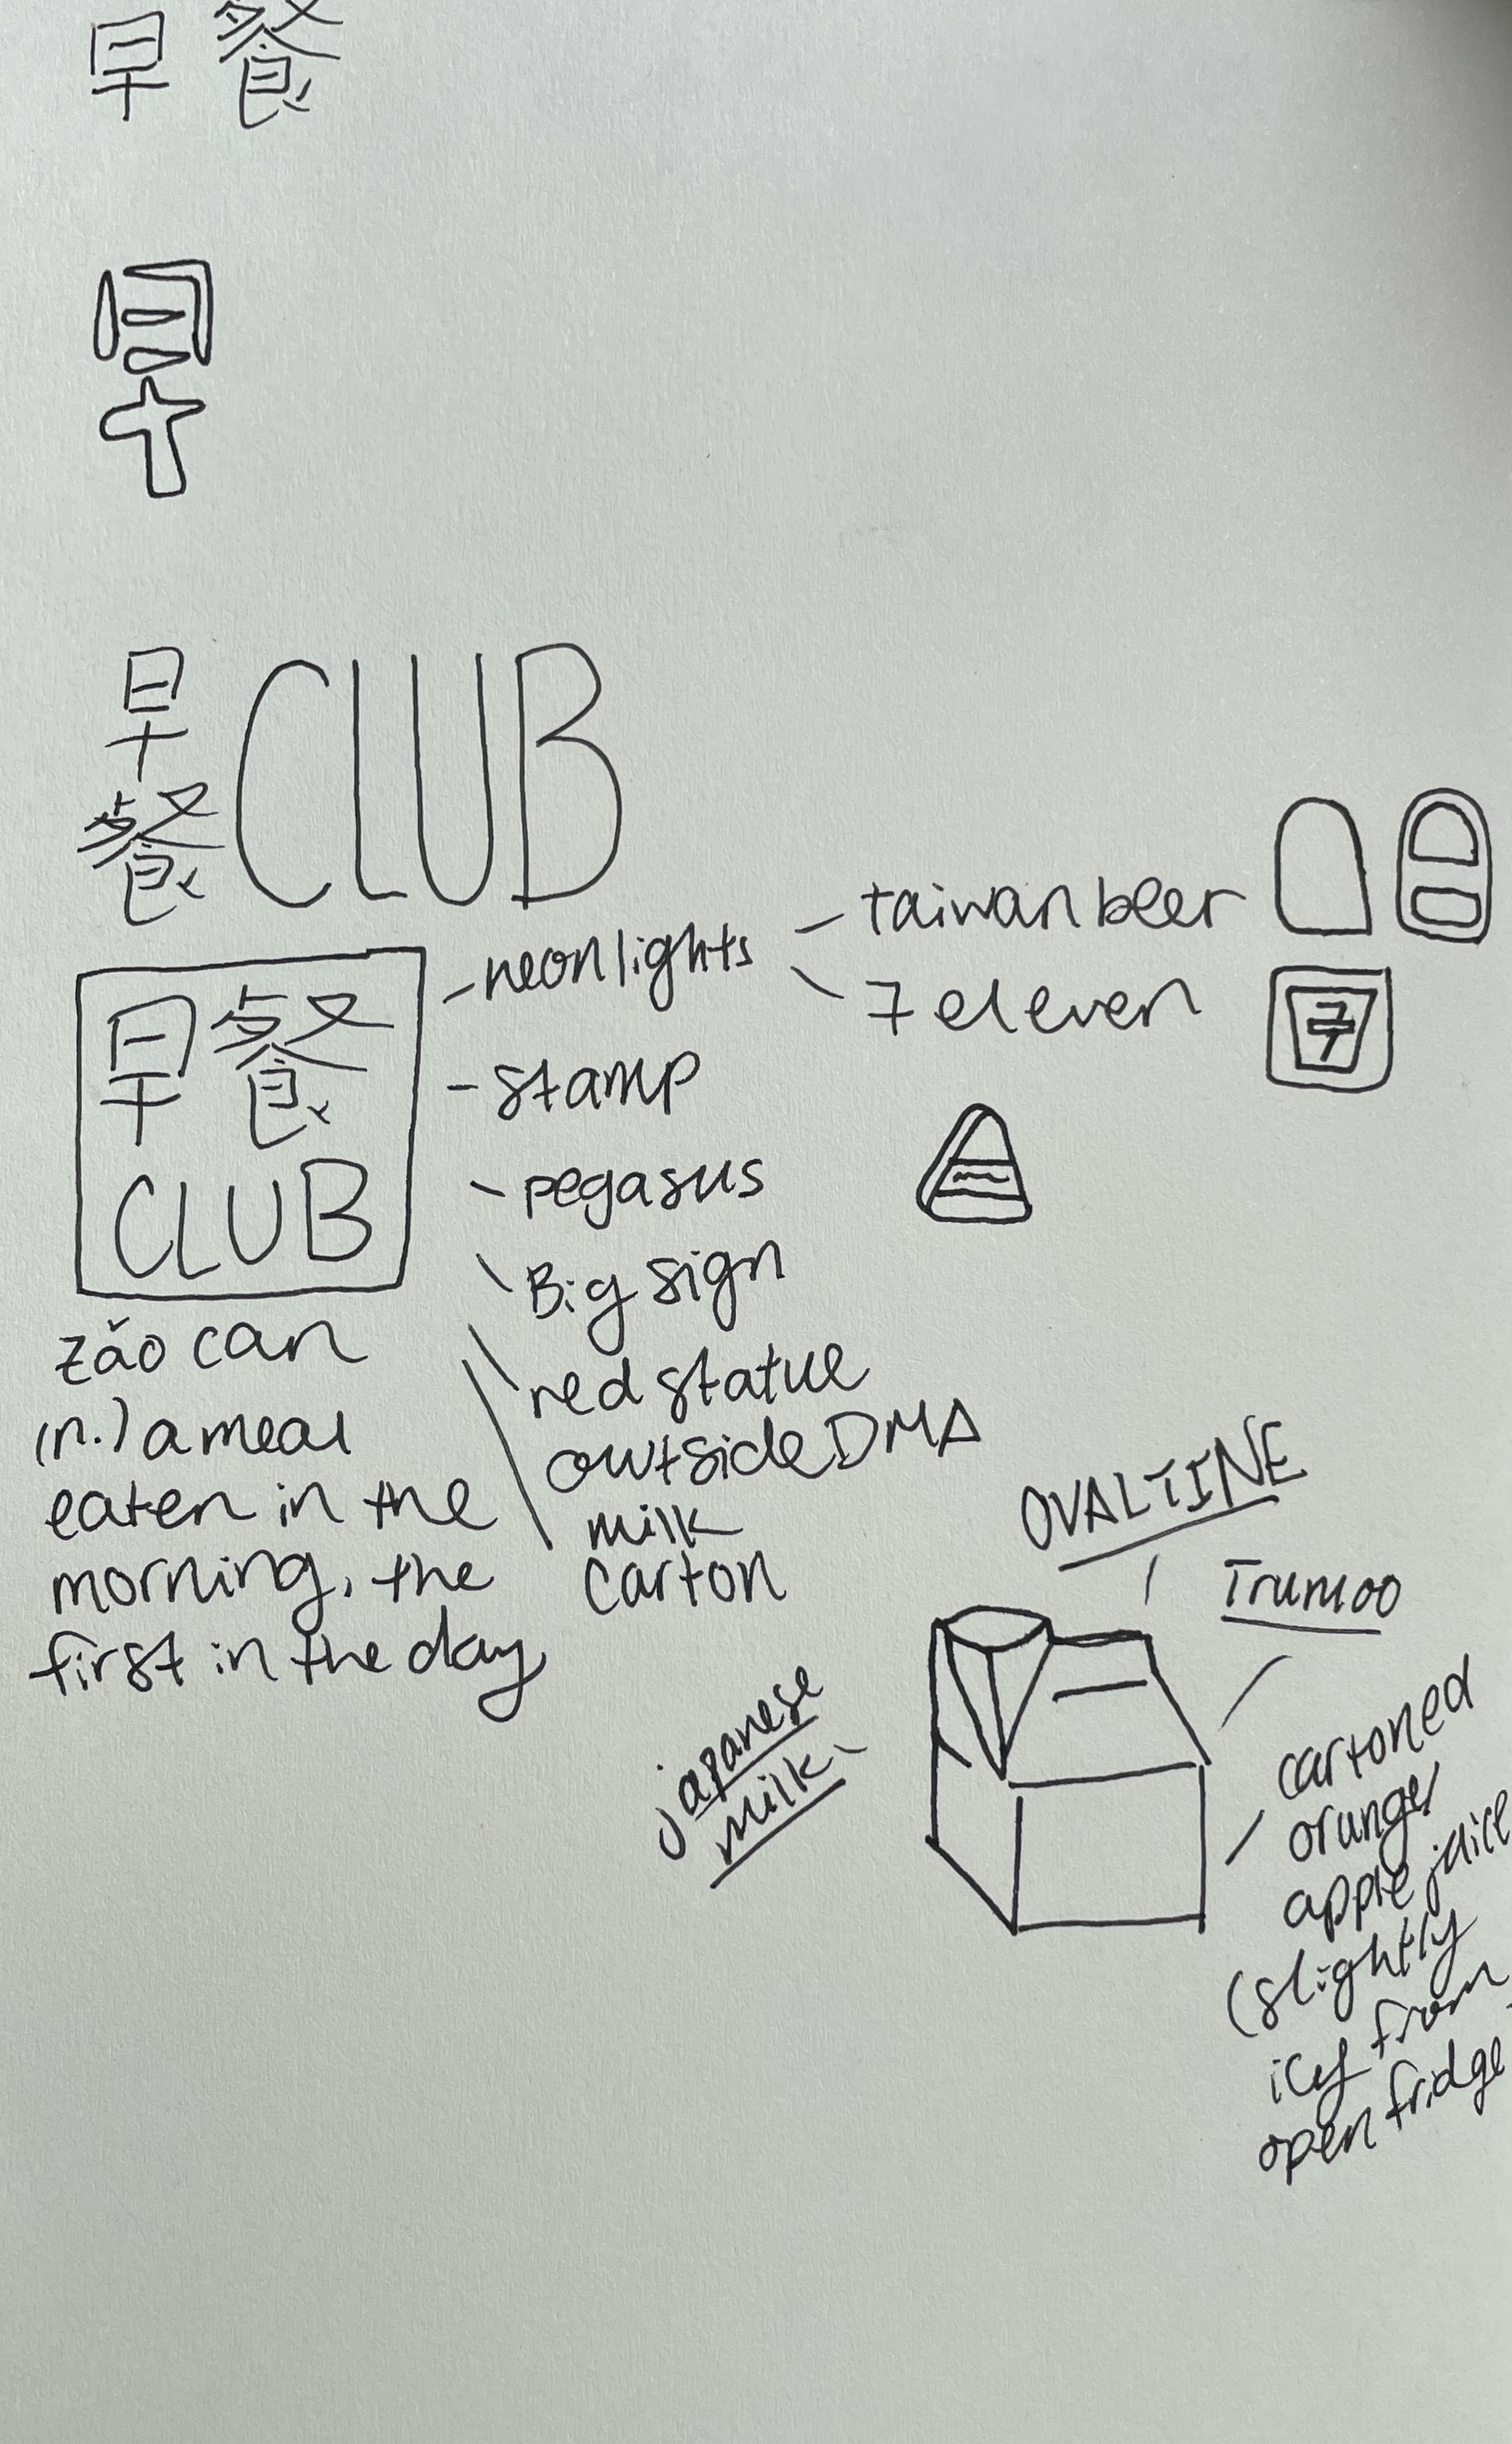 早餐
早
早餐 CLUB
早餐
CLUB
zǎo can
(n.) a meal
eaten in the
morning, the
first in the day
- neon lights
- taiwan beer
- 7 eleven
7
- stamp
- pegasus
- Big sign
- red statue
outside DMA
- milk
carton
OVALTINE
Trumoo
japanese
milk
cartoned
orange/
apple juice
(slightly
icy from
open fridge